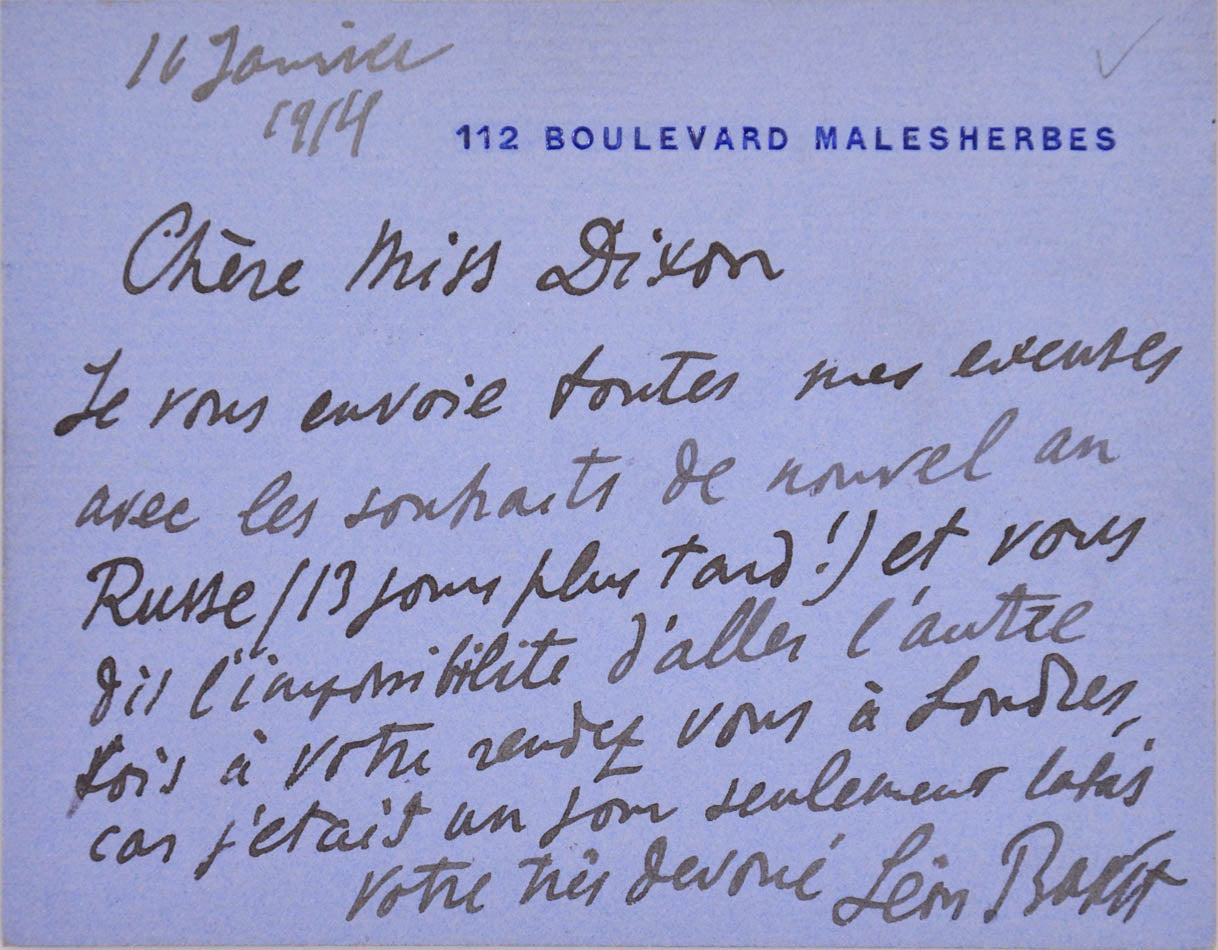 16 Janvier
1914
112 BOULEVARD MALESHERBES
Chère Miss Dixon
Je vous envoie toutes mes excuses
avec les souhaits de nouvel an
Russe (13 jours plus tard!) et vous
dis l'impossibilite d'aller l'autre
fois à votre rendez vous à Londres,
car j'etais un jour seulement
votre très devoué Léon Bakst